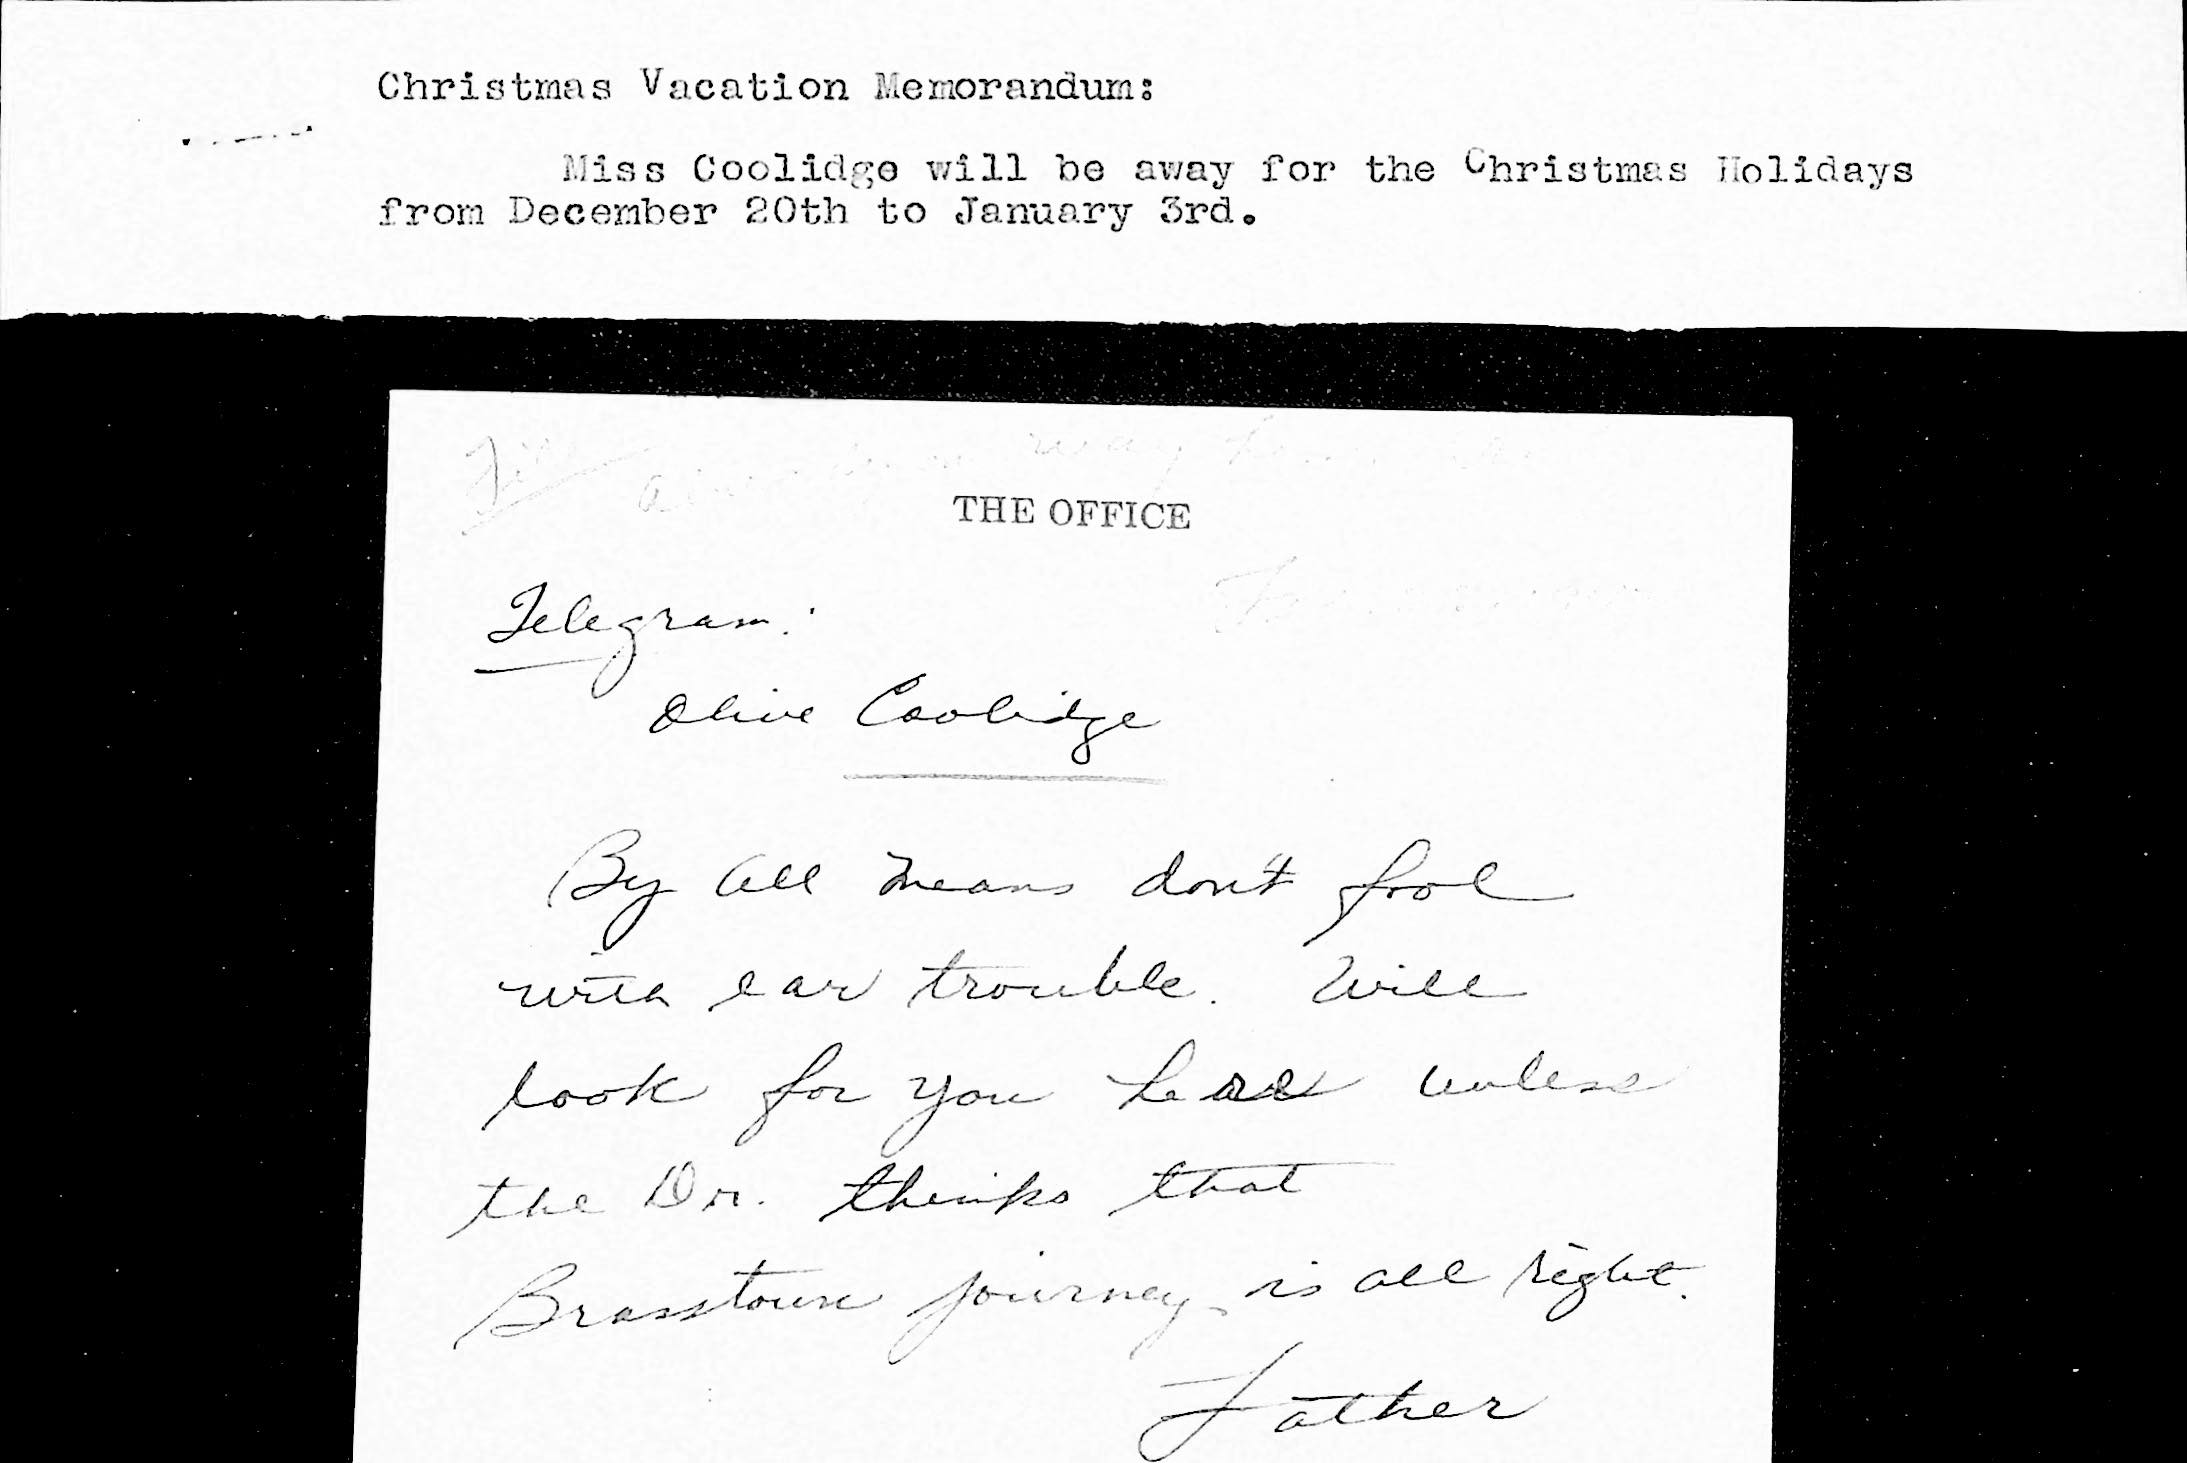 Christmas Vacation Memorandum:
Miss Coolidge will be away for the Christmas Holidays
from December 20th to January 3rd.
File way
THE OFFICE
Telegram:
Olive Coolidge
By all means don't fool
with ear trouble. Will
look for you here unless
the Dr. thinks that
Brasstown journey is all right.
Father